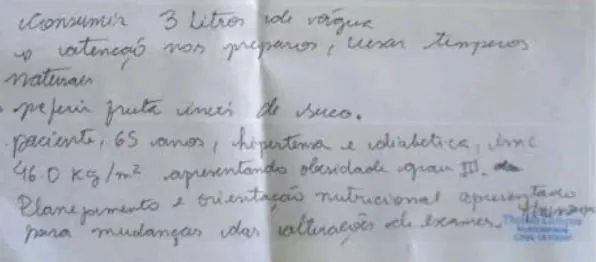 Consumir 3 Litros de água
atenção nos preparos, usar temperos
naturais
preferir fruta invés de suco.
paciente, 65 anos, hipertensa e diabética, imc
46.0 kg/m² apresentando obesidade grau III.
Planejamento e orientação nutricional apresentado
para mudanças das alterações de exames.